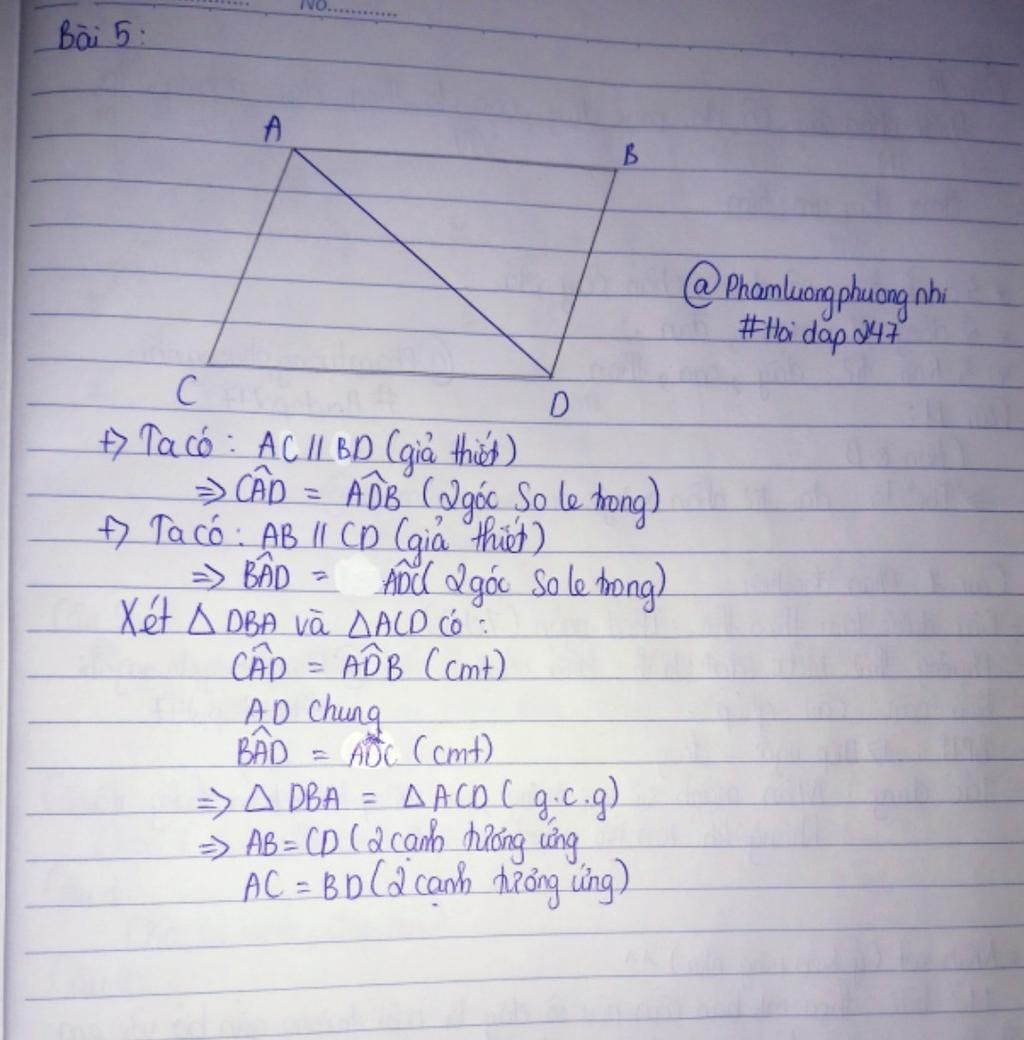 No............
Bài 5:
A
B
@Phamluongphuongnhi
#Hoi dap 247
C
D
+) Ta có: AC // BD (giả thiết)
=> CÂD = AD̂B (2 góc so le trong)
+) Ta có: AB // CD (giả thiết)
=> BÂD = AD̂C (2 góc so le trong)
Xét △DBA và △ACD có:
CÂD = AD̂B (cmt)
AD chung
BÂD = AD̂C (cmt)
=> △ DBA = △ACD (g.c.g)
=> AB = CD (2 cạnh tương ứng
AC = BD (2 cạnh tương ứng)